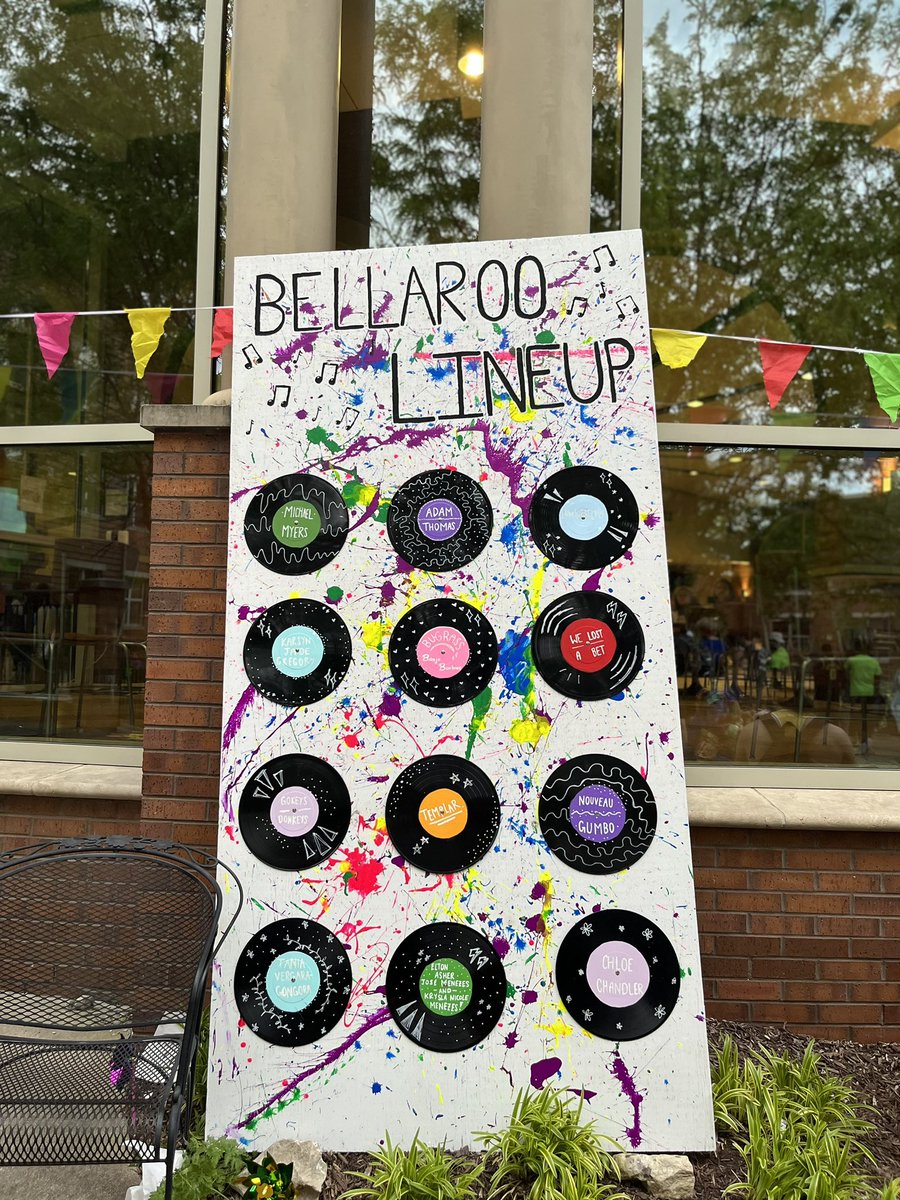 BELLAROO
LINEUP
MICHAEL
MYERS
ADAM
THOMAS
KARSYN
JAYDE
GREGORY
BUGRASS
Banjo Barbies
WE LOST
A BET
GOKEYS
DONKEYS
TEMPLAR
NOUVEAU
GUMBO
TANIA
VERGARA-
GONGORA
ELTON
ASHER
JOSÉ MENEZES
-AND-
KRYSLA NICOLE
MENEZES!
CHLOE
CHANDLER